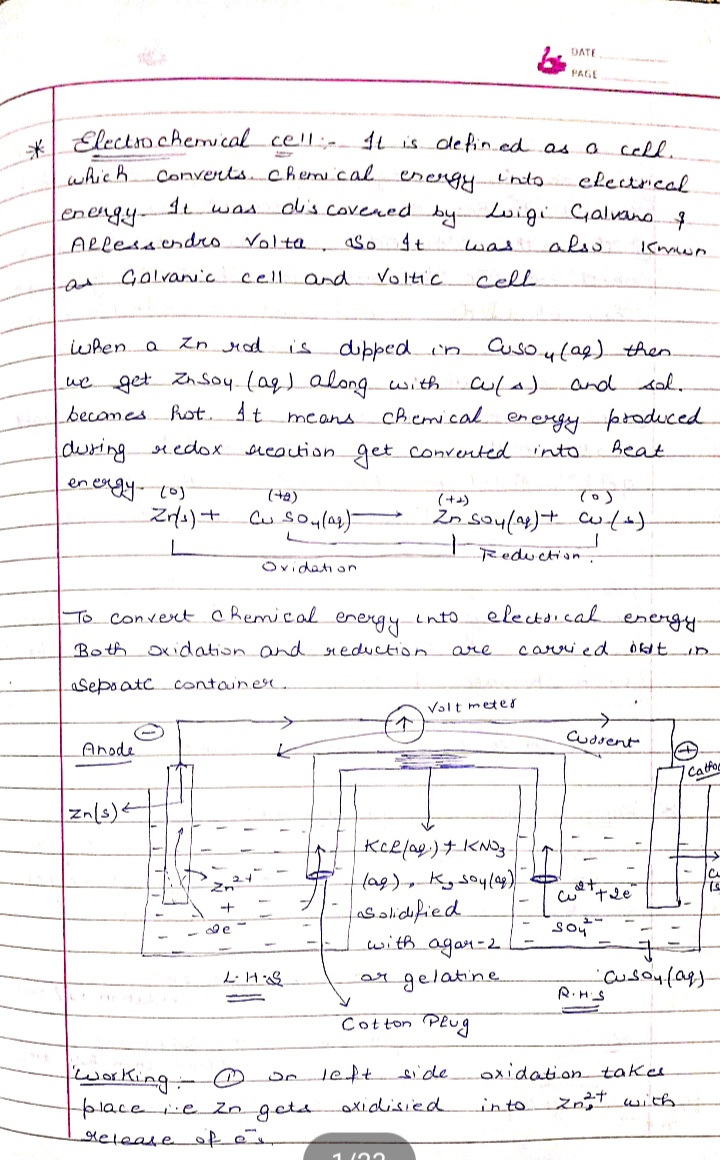 DATE
PAGE
* Electrochemical cell:- It is defined as a cell.
which converts chemical energy into electrical
energy. It was discovered by Luigi Galvano &
Allessendro Volta. So It was also Known
as Galvanic cell and Voltic cell
when a Zn rod is dipped in CuSO4(aq) then
we get ZnSO4 (aq) along with Cu(s) and sol.
becomes hot. It means chemical energy produced
during redox reaction get converted into heat
energy.
(0) (+2) (+2) (0)
Zn(s) + CuSO4(aq) → ZnSO4(aq) + Cu(s)
Reduction.
Oxidation
To convert chemical energy into electrical energy
Both oxidation and reduction are carried out in
seprate container.
Volt meter
Current
Anode
Cathod
Zn(s)
KCl(aq) + KNO3
(aq), K2SO4(aq)
Solidified
with agar-2
or gelatine
Zn2+
+
2e-
Cu2+ + 2e-
SO4 2-
L.H.S
R.H.S
CuSO4(aq)
Cotton Plug
Working:- ① on left side oxidation takes
place i.e Zn gets oxidisied into Zn2+ with
release of e-s.
1/22